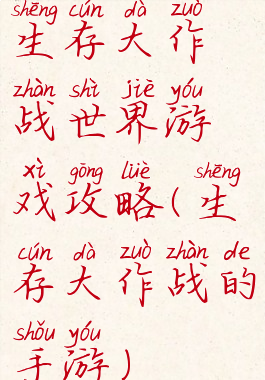 shēng cún dà zuò
生存大作
zhàn shì jiè yóu
战世界游
xì gōng lüè shēng
戏攻略(生
cún dà zuò zhàn de
存大作战的
shǒu yóu
手游)